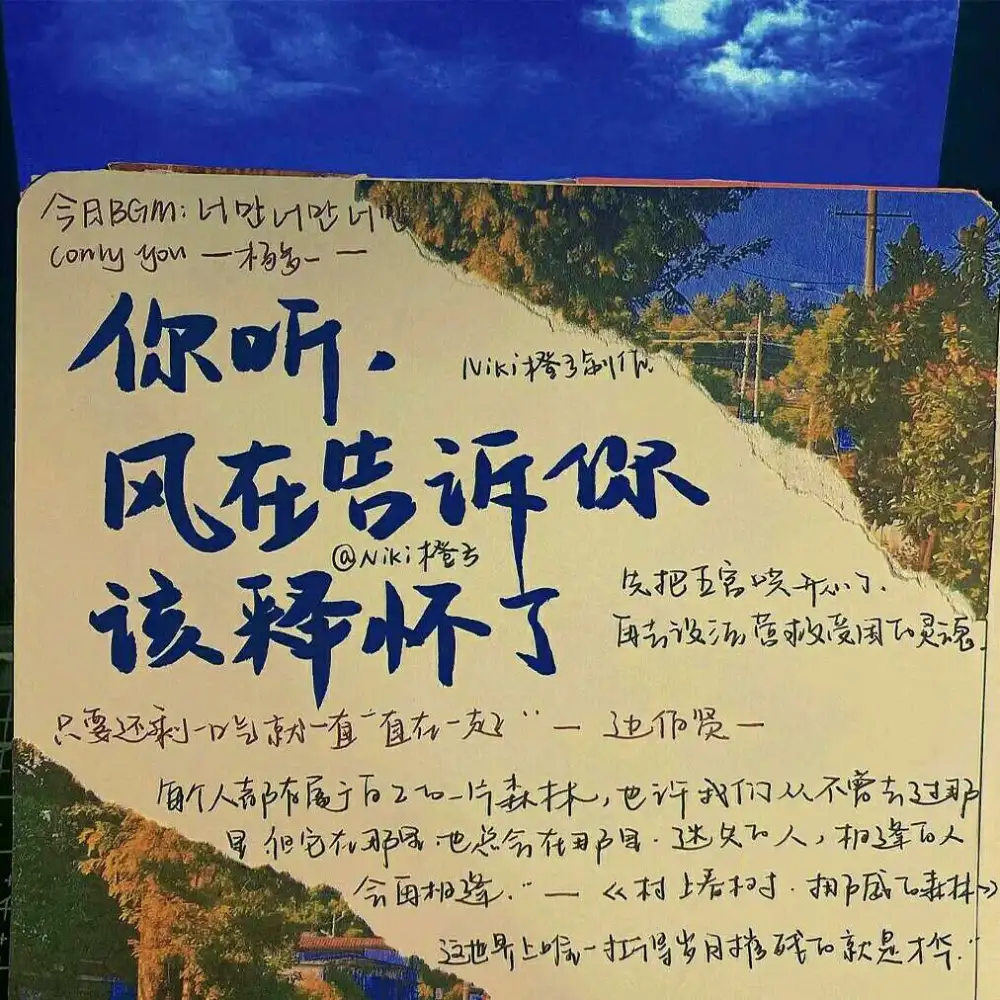 今日BGM: 너만너만너만
(only you 一杨多一 一
你听.
Niki橙子制作
风在告诉你
@Niki橙子
该释怀了
先把五官哄开心了.
再去设法营救受困的灵魂.
只要还剩一口气就一直一直在一起" — 边伯贤 —
每个人都有属于自己的一片森林,也许我们从不曾去过那
里 但它在那里.也总会在那里.迷失的人,相逢的人
会再相逢." — 《村上春树.挪威的森林》
这世界上唯一扛得岁月摧残的就是才华."